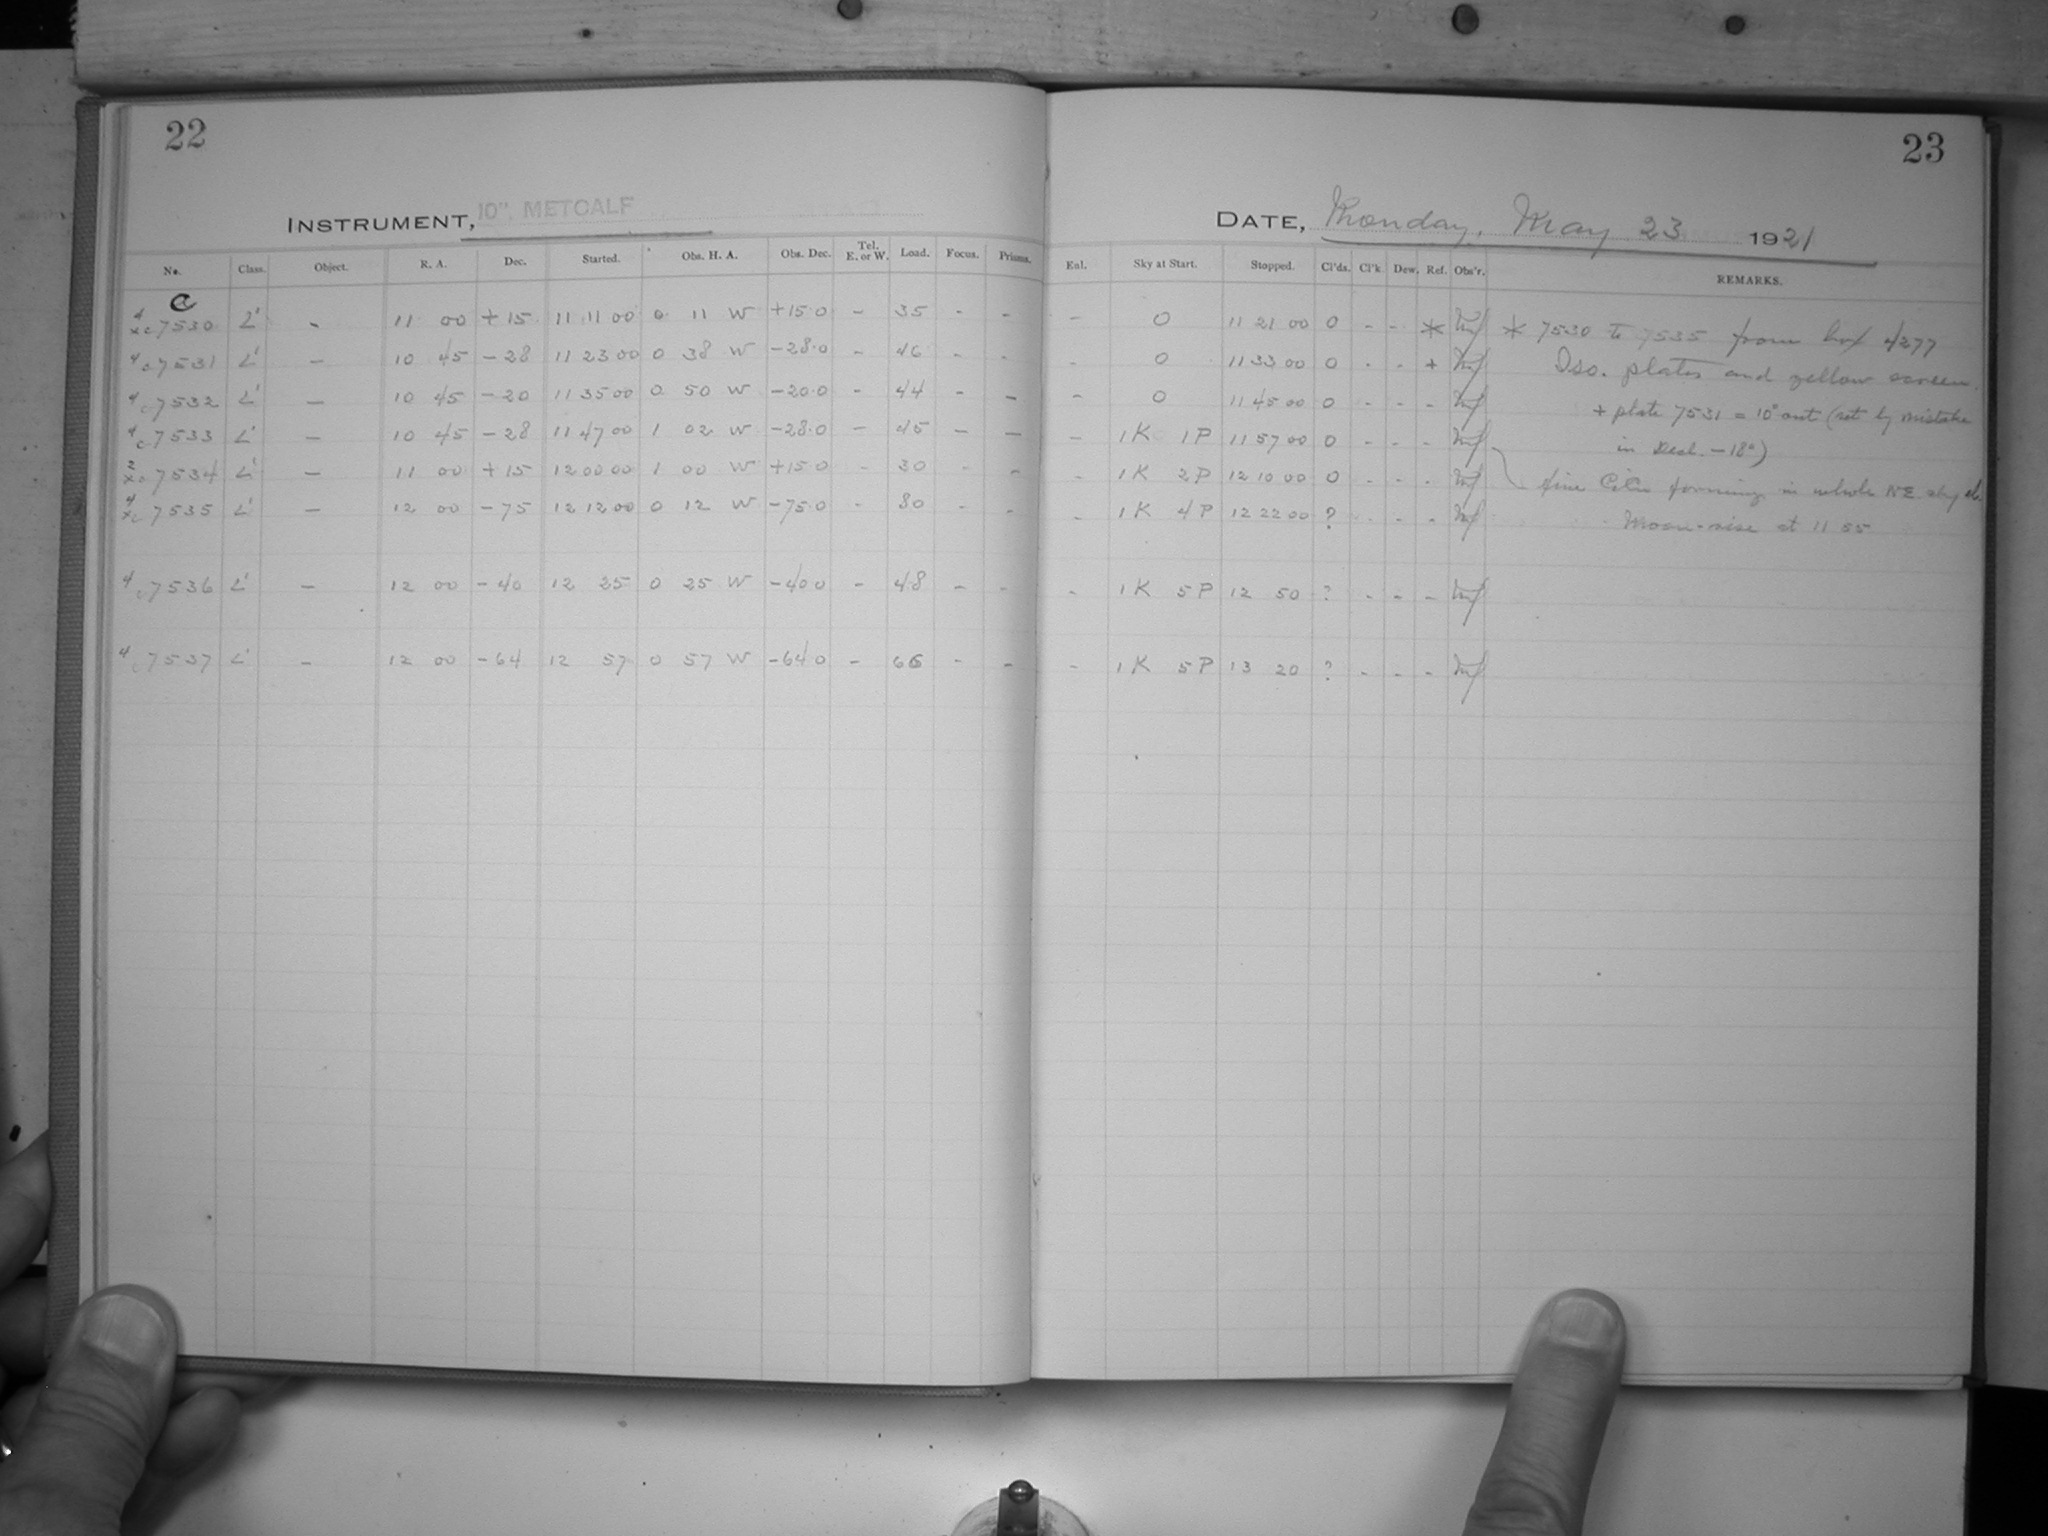 22
INSTRUMENT, 10" METCALF
No. Class. Object. R. A. Dec. Started. Obs. H. A. Obs. Dec. Tel. E. or W. Load. Focus. Prisms.
C
4 xc 7530 L' - 11 00 +15 11 11 00 0 11 W +15 0 - 35 - -
4 c 7531 L' - 10 45 -28 11 23 00 0 38 W -28.0 - 46 - -
4 c 7532 L' - 10 45 -20 11 35 00 0 50 W -20.0 - 44 - -
4 c 7533 L' - 10 45 -28 11 47 00 1 02 W -28.0 - 45 - -
2 xc 7534 L' - 11 00 +15 12 00 00 1 00 W +15.0 - 30 - -
4 xc 7535 L' - 12 00 -75 12 12 00 0 12 W -75.0 - 80 - -
4 c 7536 L' - 12 00 -40 12 25 0 25 W -40 0 - 48 - -
4 c 7537 L' - 12 00 -64 12 57 0 57 W -64 0 - 66 - -
23
DATE, Monday, May 23 1921
Enl. Sky at Start. Stopped. Cl'ds. Cl'k. Dew. Ref. Obs'r. REMARKS.
- 0 11 21 00 0 - - * * 7530 to 7535 from box 4277
- 0 11 33 00 0 - - + Iso. plates and yellow screen.
- 0 11 45 00 0 - - - + plate 7531 = 10° out (set by mistake
- 1K 1P 11 57 00 0 - - - in Decl. -18°)
- 1K 2P 12 10 00 0 - - - fine CiCu forming in whole NE sky
- 1K 4P 12 22 00 ? - - - Moon-rise at 11 55
- 1K 5P 12 50 ? - - -
- 1K 5P 13 20 ? - - -